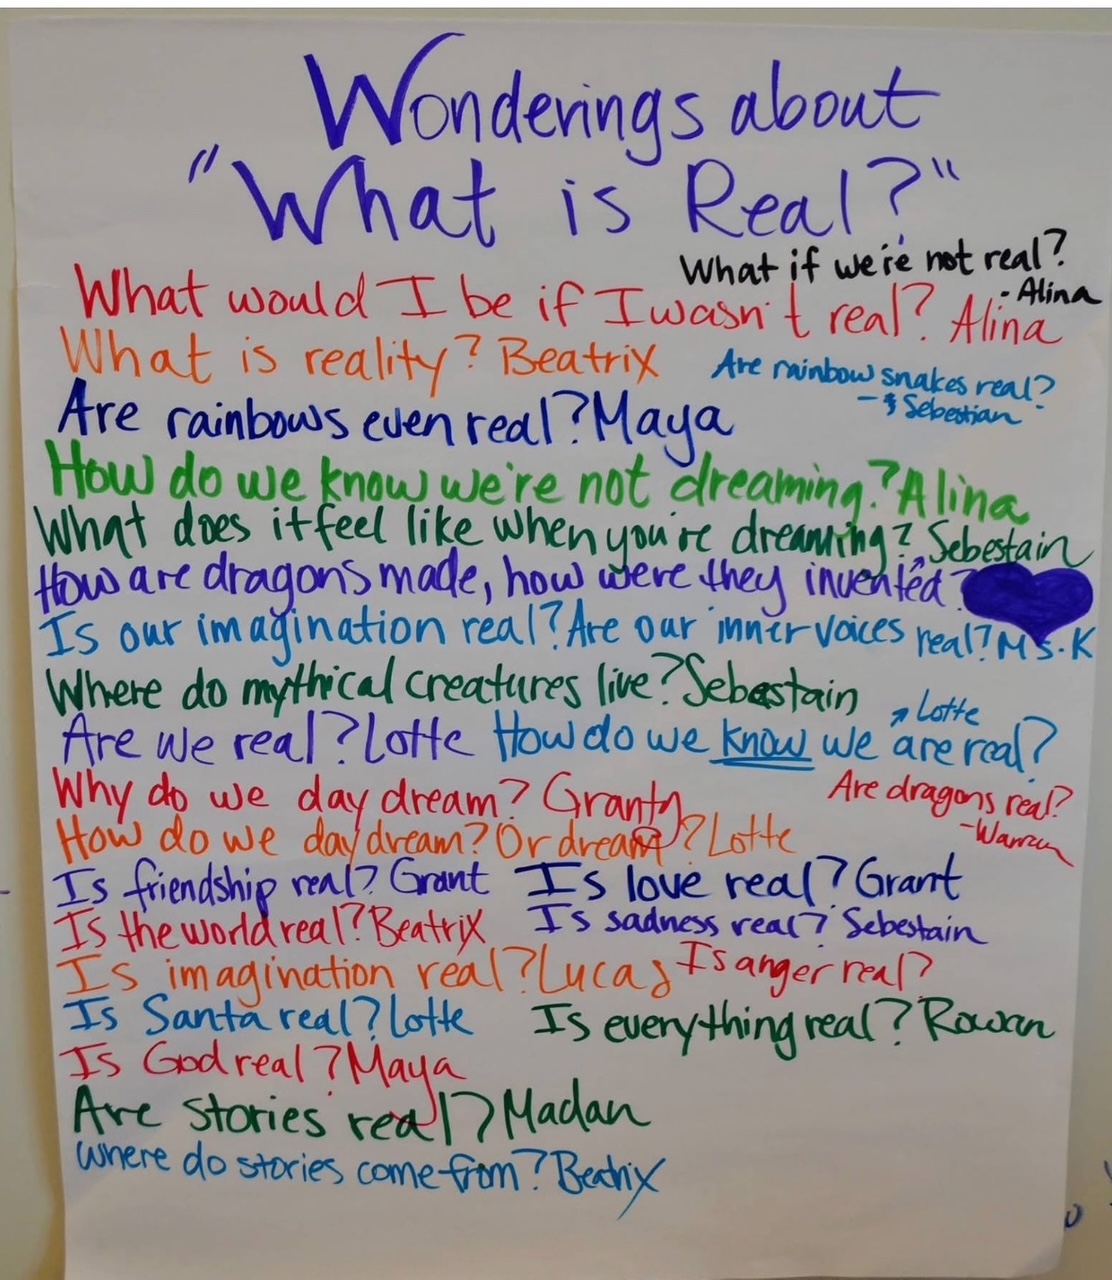 Wonderings about
"What is Real?"
What if we're not real?
- Alina
What would I be if I wasn't real? Alina
What is reality? Beatrix
Are rainbow snakes real?
- Sebestian
Are rainbows even real? Maya
How do we know we're not dreaming? Alina
What does it feel like when you're dreaming? Sebestain
How are dragons made, how were they invented?
Is our imagination real? Are our inner voices real? Ms. K
Where do mythical creatures live? Sebastain
Lotte
Are we real? Lotte How do we know we are real?
Why do we day dream? Grant
Are dragons real?
- Warren
How do we day dream? Or dream? Lotte
Is friendship real? Grant Is love real? Grant
Is the world real? Beatrix Is sadness real? Sebestain
Is imagination real? Lucas Is anger real?
Is Santa real? Lotte Is everything real? Rowan
Is God real? Maya
Are stories real? Madan
Where do stories come from? Beatrix